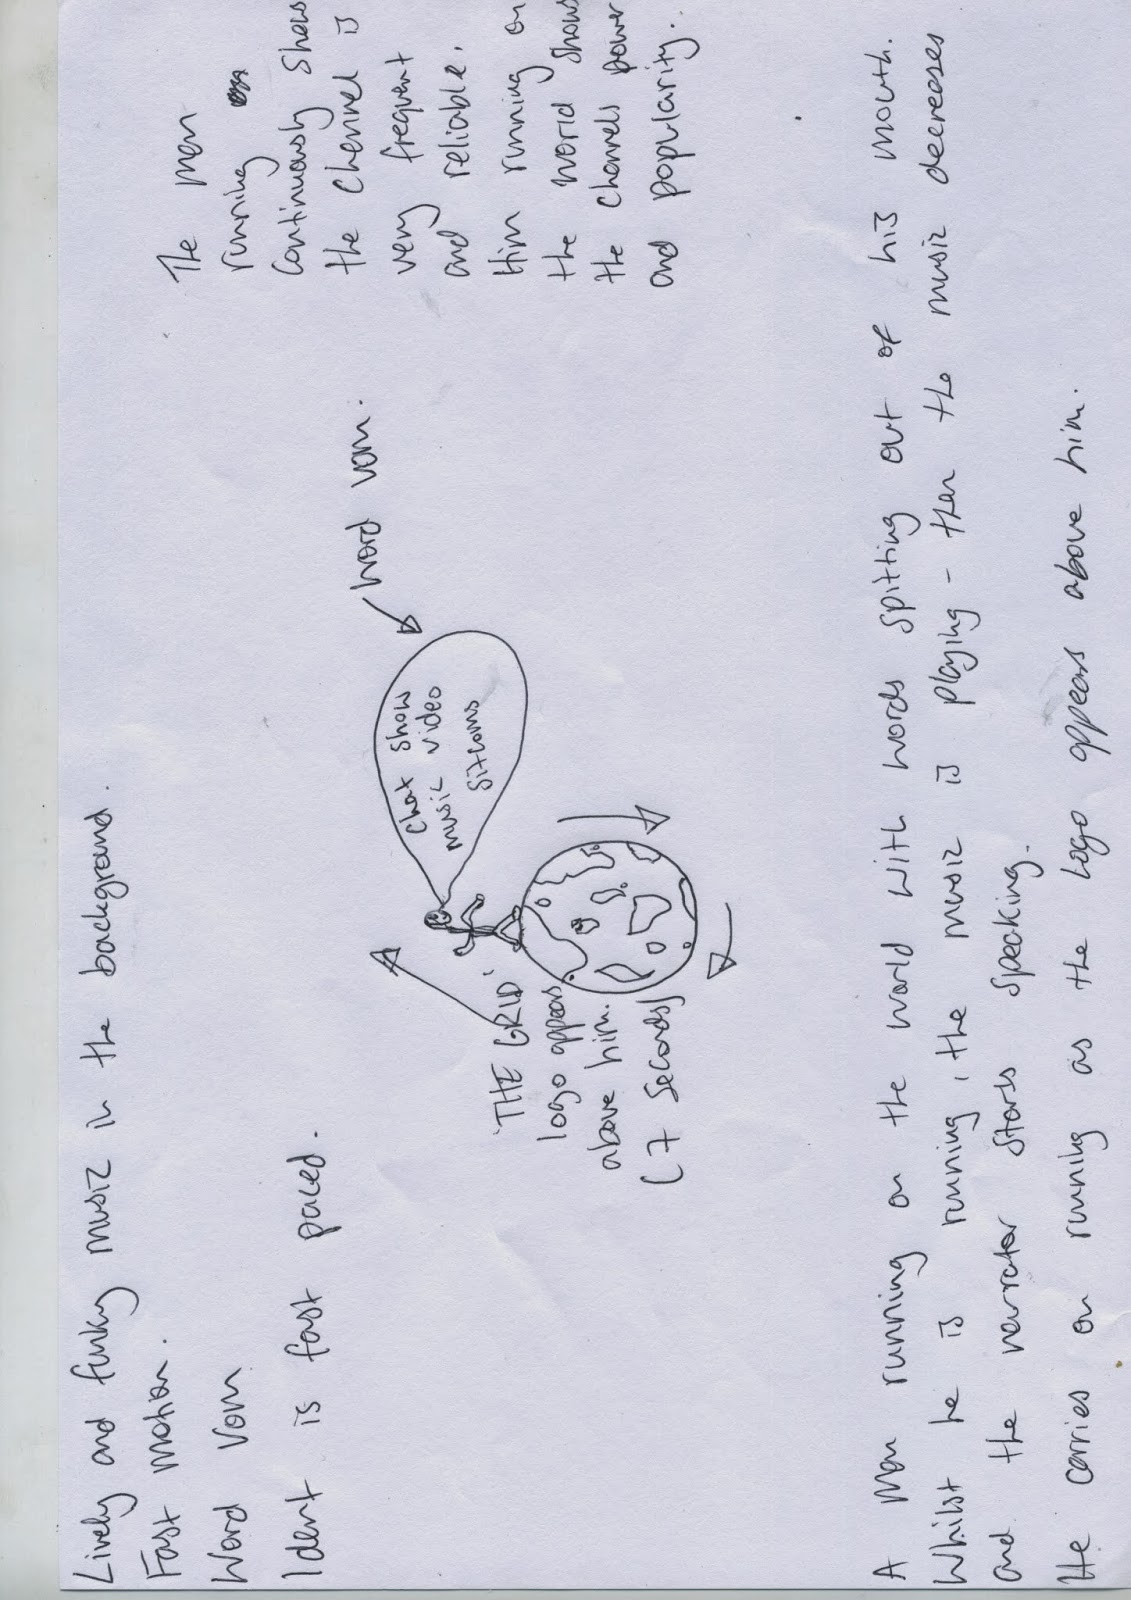 Lively and funky music in the background.
Fast motion.
Word vom
Ident is fast paced.
The man
running
continuously shows
the channel is
very frequent
and reliable.
Him running on
the world shows
the channels power
and popularity..
word vom.
Chat show
music video
sitcoms
'THE GRID'
logo appears
above him.
(7 seconds)
A man running on the world with words spitting out of his mouth.
Whilst he is running, the music is playing - then the music decreases
and the narrator starts speaking.
He carries on running as the logo appears above him.